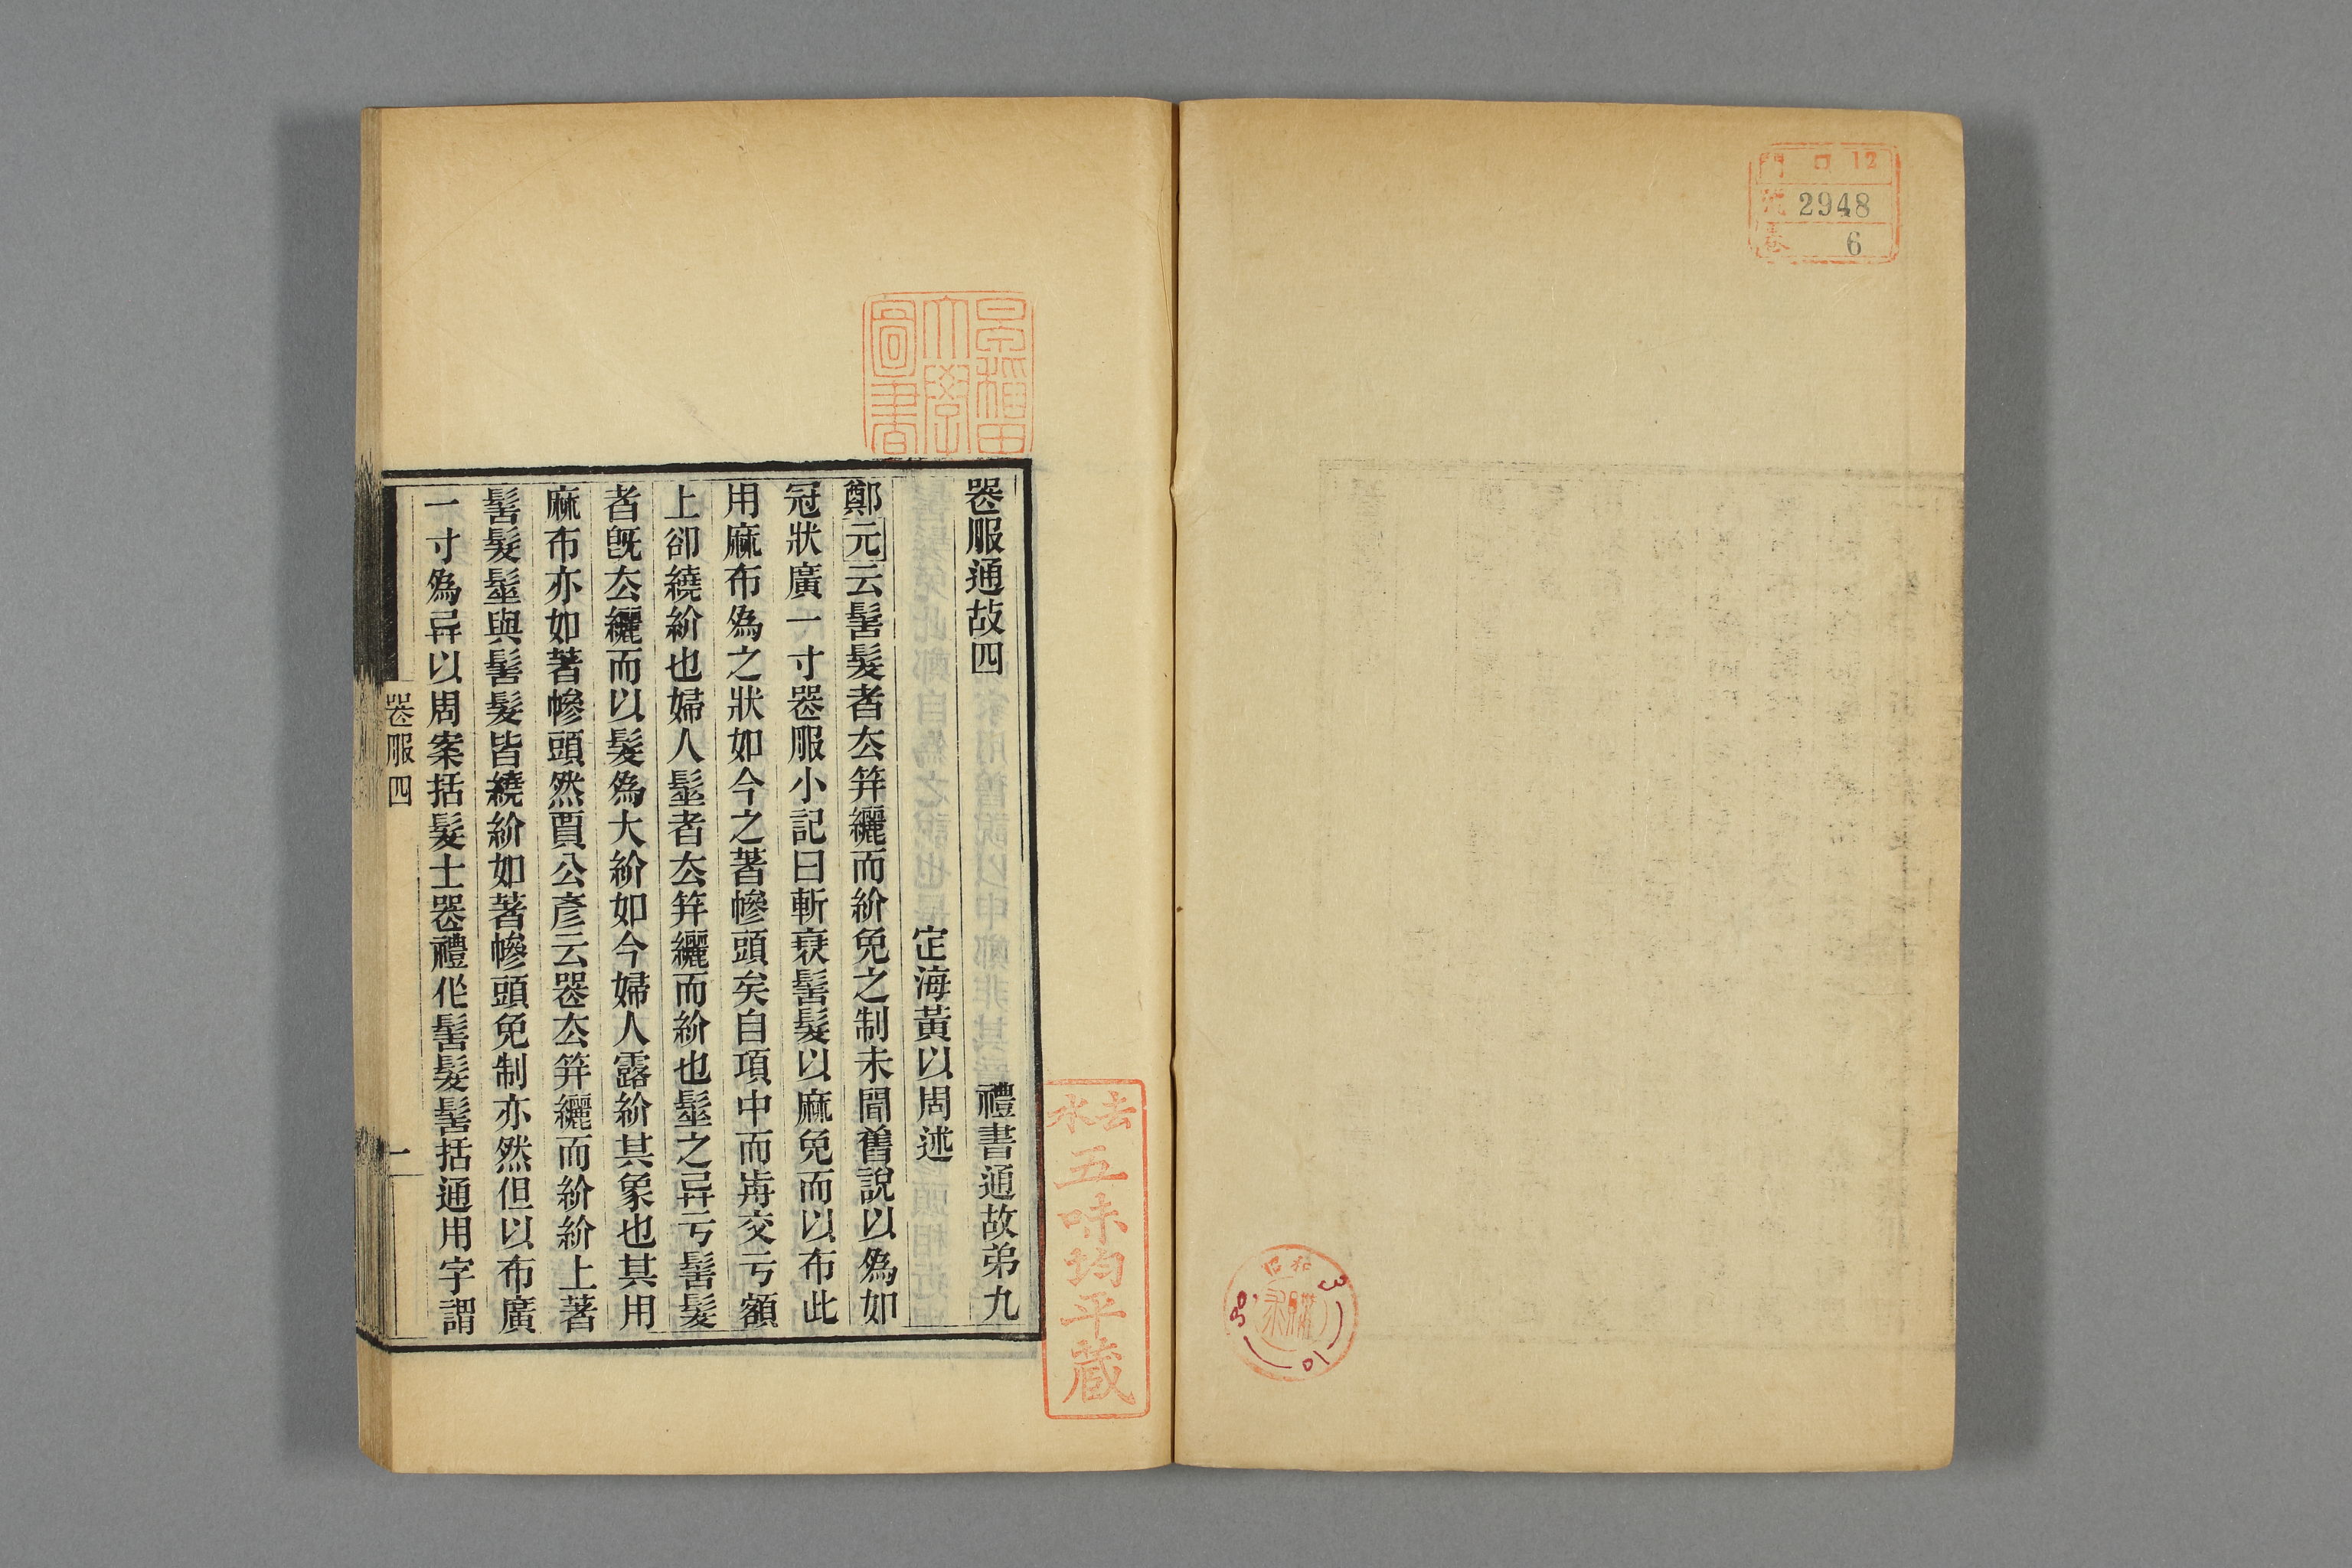 門 ロ 12
號 2948
卷 6
早稻田
大學
圖書
喪服通故四 禮書通故弟九
定海黃以周述
鄭元云髺髮者厺笄纚而紒免之制未聞舊說以爲如
冠狀廣一寸喪服小記曰斬衰髺髮以麻免而以布此
用麻布爲之狀如今之著幓頭矣自項中而歬交亏額
上卻繞紒也婦人髽者厺笄纚而紒也髽之异亏髺髮
者旣厺纚而以髮爲大紒如今婦人露紒其象也其用
麻布亦如著幓頭然賈公彥云喪厺笄纚而紒紒上著
髺髮髽與髺髮皆繞紒如著幓頭免制亦然但以布廣
一寸爲异以周案括髮士喪禮作髺髮髺括通用字謂
喪服四
一
去水
五味均平蔵
昭和
38
3
10